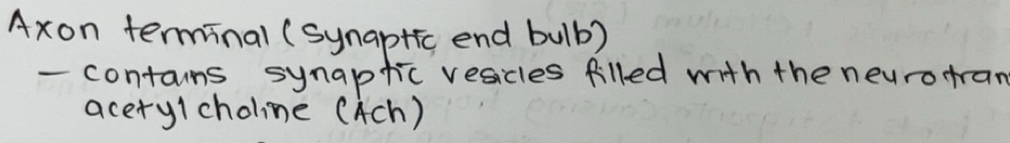 Axon terminal (synaptic end bulb)
- contains synaptic vesicles filled with the neurotran
acetylcholine (Ach)